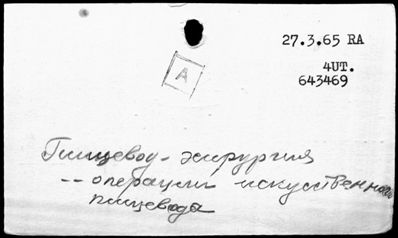 27.3.65 RA
4UT.
643469
A
Пищевод - хирургия
-- операции искусственного
пищевода